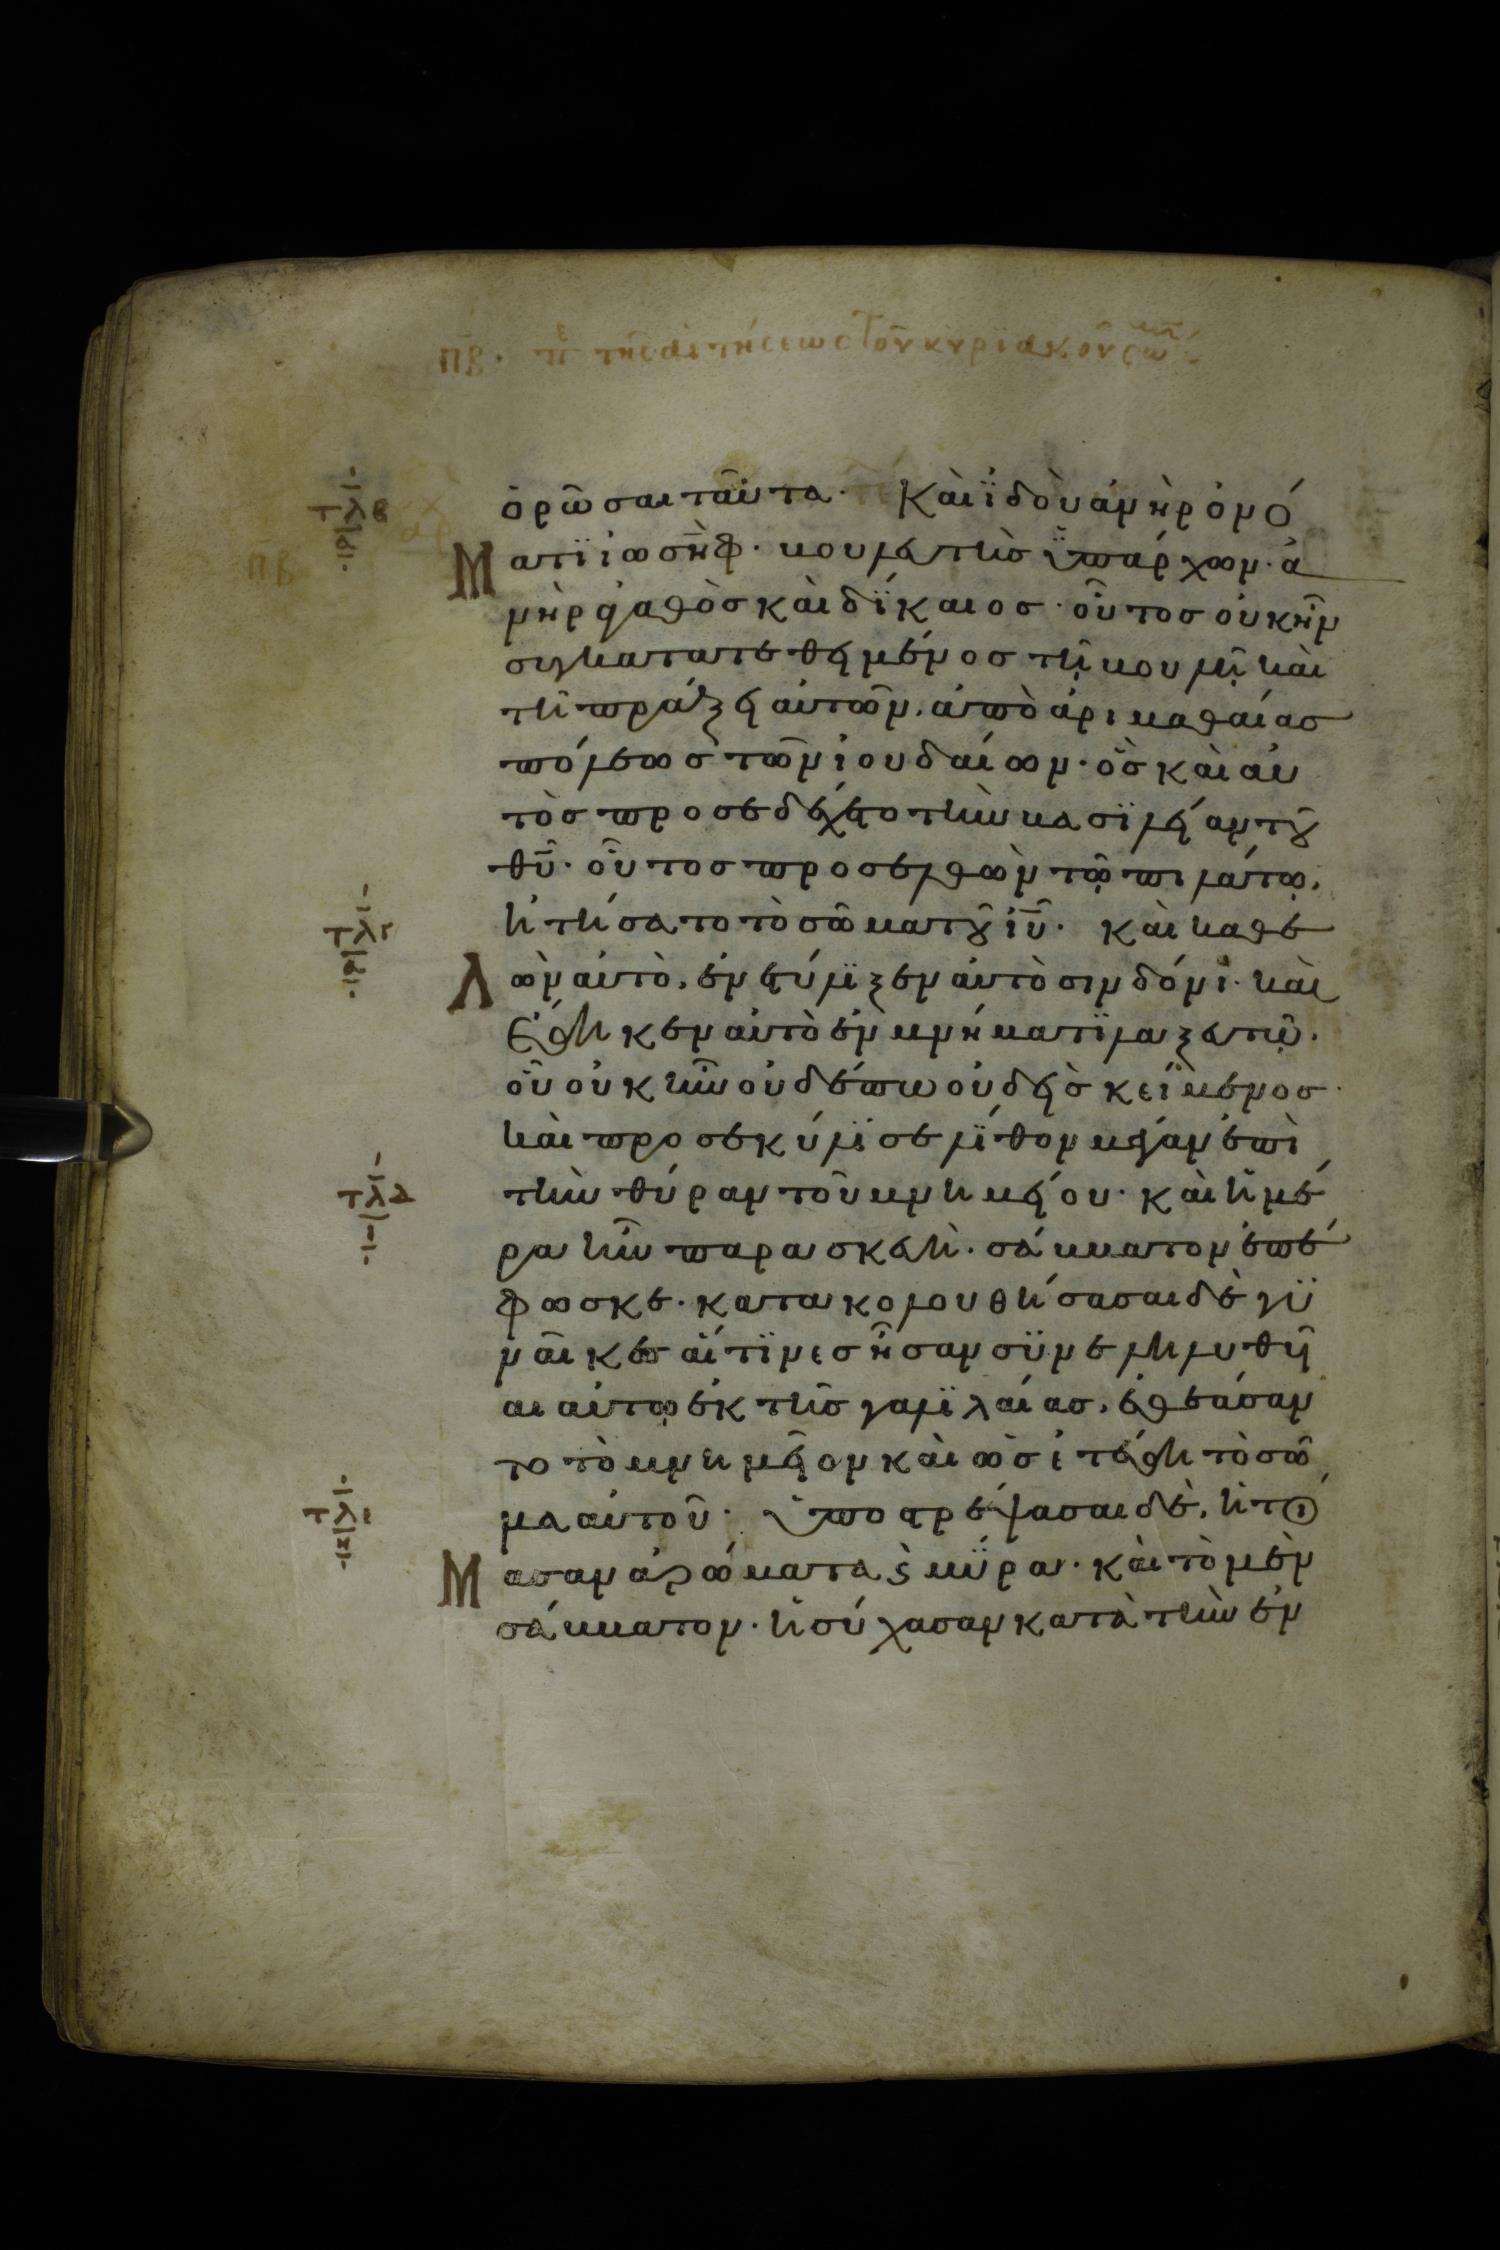 πβ· πε τῆς αἰτήσεως τοῦ κυριακοῦ σώμ
ὁρῶσαι ταῦτα· Καὶ ϊδοὺ ἀνὴρ ὀνό
τλβ
Ματϊ ἰωσὴφ· βουλευτὴς ὑπάρχων· ἀ
πβ
νὴρ ἀγαθὸς καὶ δϊκαιος· οὗτος οὐκ ἦν
συγκατατεθειμένος τῆ βουλῆ καὶ
τῆ πράξει αὐτῶν. ἀπὸ ἀριμαθαίας
πόλεως τῶν ἰουδαίων· ὃς καὶ αὐ
τὸς προσεδέχετο τὴν βασϊλείαν τοῦ
θῦ· οὗτος προσελθὼν τῶ πιλάτω,
τλγ
ἠτήσατο τὸ σῶμα τοῦ ἰῦ· καὶ καθε
Λὼν αὐτὸ, ἐνετύλϊξεν αὐτὸ σινδόνι· καὶ
ἔθηκεν αὐτὸ ἐν μνήματϊ λαξευτῶ·
οὗ οὐκ ἦν οὐδέπω οὐδεὶς κείμενος·
καὶ προσεκύλϊσε λϊθον μέγαν ἐπὶ
τλδ
τὴν θύραν τοῦ μνημείου· καὶ ἡμέ
ρα ἦν παρασκευὴ· σάββατον ἐπέ
φωσκε· κατακολουθήσασαι δὲ γϋ
ναῖκες αἵτϊνες ἦσαν σϋνεληλυθυῖ
αι αὐτῶ ἐκ τῆς γαλϊλαίας, ἐθεάσαν
το τὸ μνημεῖον καὶ ὡς ἐτέθη τὸ σῶ
τλε
μα αὐτοῦ· ὑποστρέψασαι δὲ, ἡτοι
Μασαν ἀρώματα ϛ μύρα· καὶ τὸ μὲν
σάββατον· ἡσύχασαν κατὰ τὴν ἐν